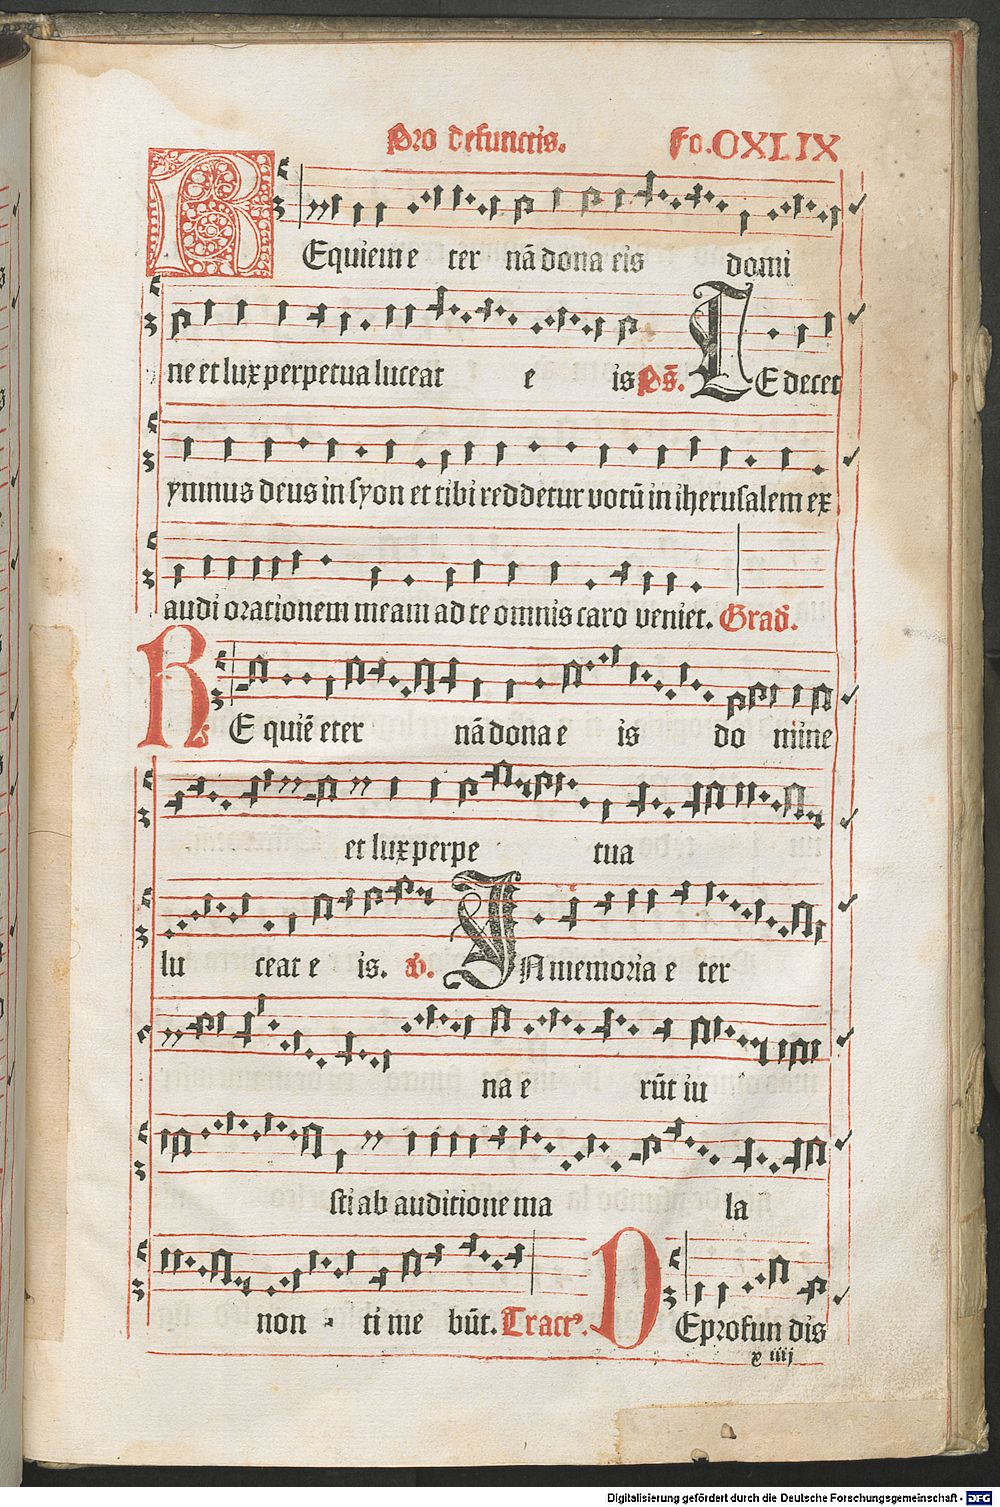 Pro defunctis. Fo. CXLIX
REquiem e ter nā dona eis domi
ne et lux perpetua luceat e is Ps̄. TE decet
ymnus deus in syon et tibi reddetur votū in iherusalem ex
audi orationem meam ad te omnis caro veniet. Grad.
RE quiē eter nā dona e is do mine
et lux perpe tua
lu ceat e is. V. IN memoria e ter
na e rūt iu
sti ab auditione ma la
non ti me būt. Tract. DE profun dis
x iiij
Digitalisierung gefördert durch die Deutsche Forschungsgemeinschaft - DFG